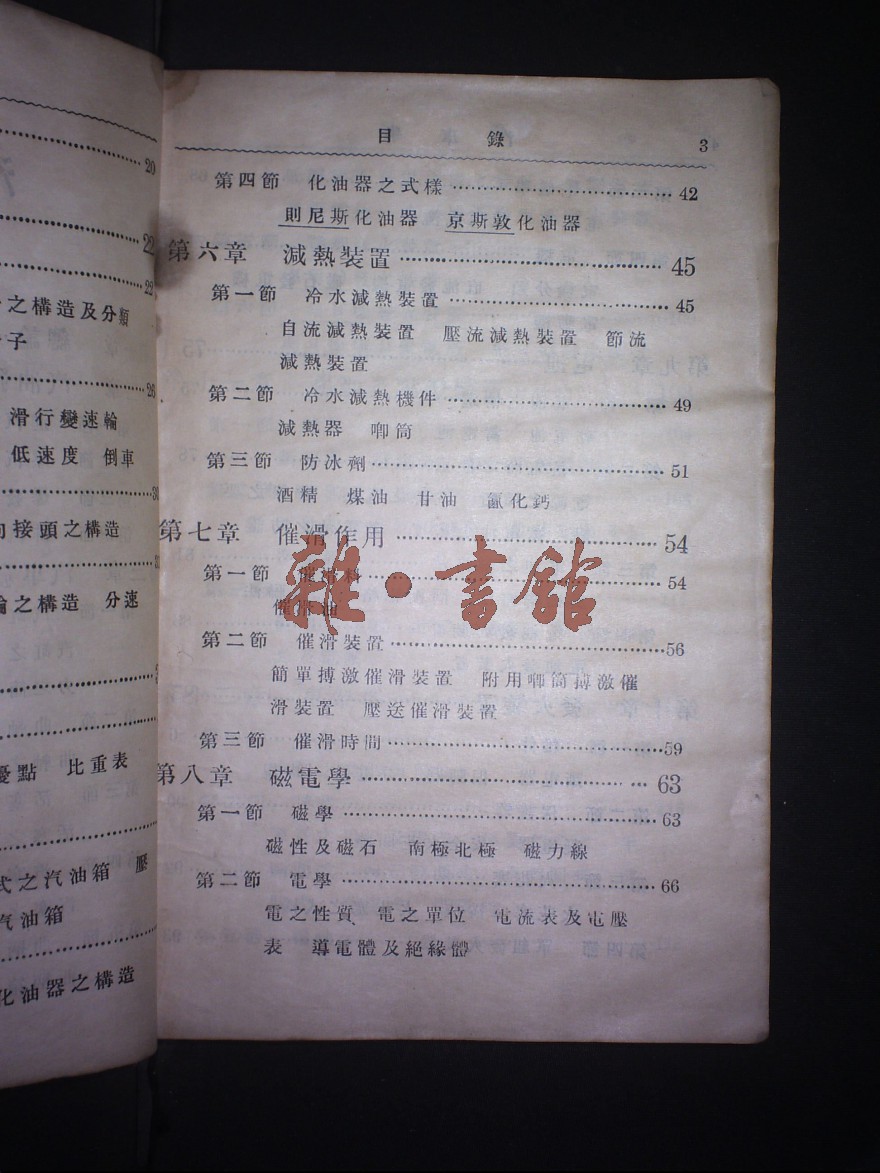 20
22
22
之構造及分類
子
26
滑行變速輪
低速度 倒車
接頭之構造
之構造 分速
點 比重表
式之汽油箱 壓
汽油箱
化油器之構造
目錄 3
第四節 化油器之式樣 42
則尼斯化油器 京斯敦化油器
第六章 減熱裝置 45
第一節 冷水減熱裝置 45
自流減熱裝置 壓流減熱裝置 節流
減熱裝置
第二節 冷水減熱機件 49
減熱器 唧筒
第三節 防冰劑 51
酒精 煤油 甘油 氯化鈣
第七章 催滑作用 54
第一節 催滑料 54
催滑油
第二節 催滑裝置 56
簡單搏激催滑裝置 附用唧筒搏激催
滑裝置 壓送催滑裝置
第三節 催滑時間 59
第八章 磁電學 63
第一節 磁學 63
磁性及磁石 南極北極 磁力線
第二節 電學 66
電之性質 電之單位 電流表及電壓
表 導電體及絕緣體
雜·書館